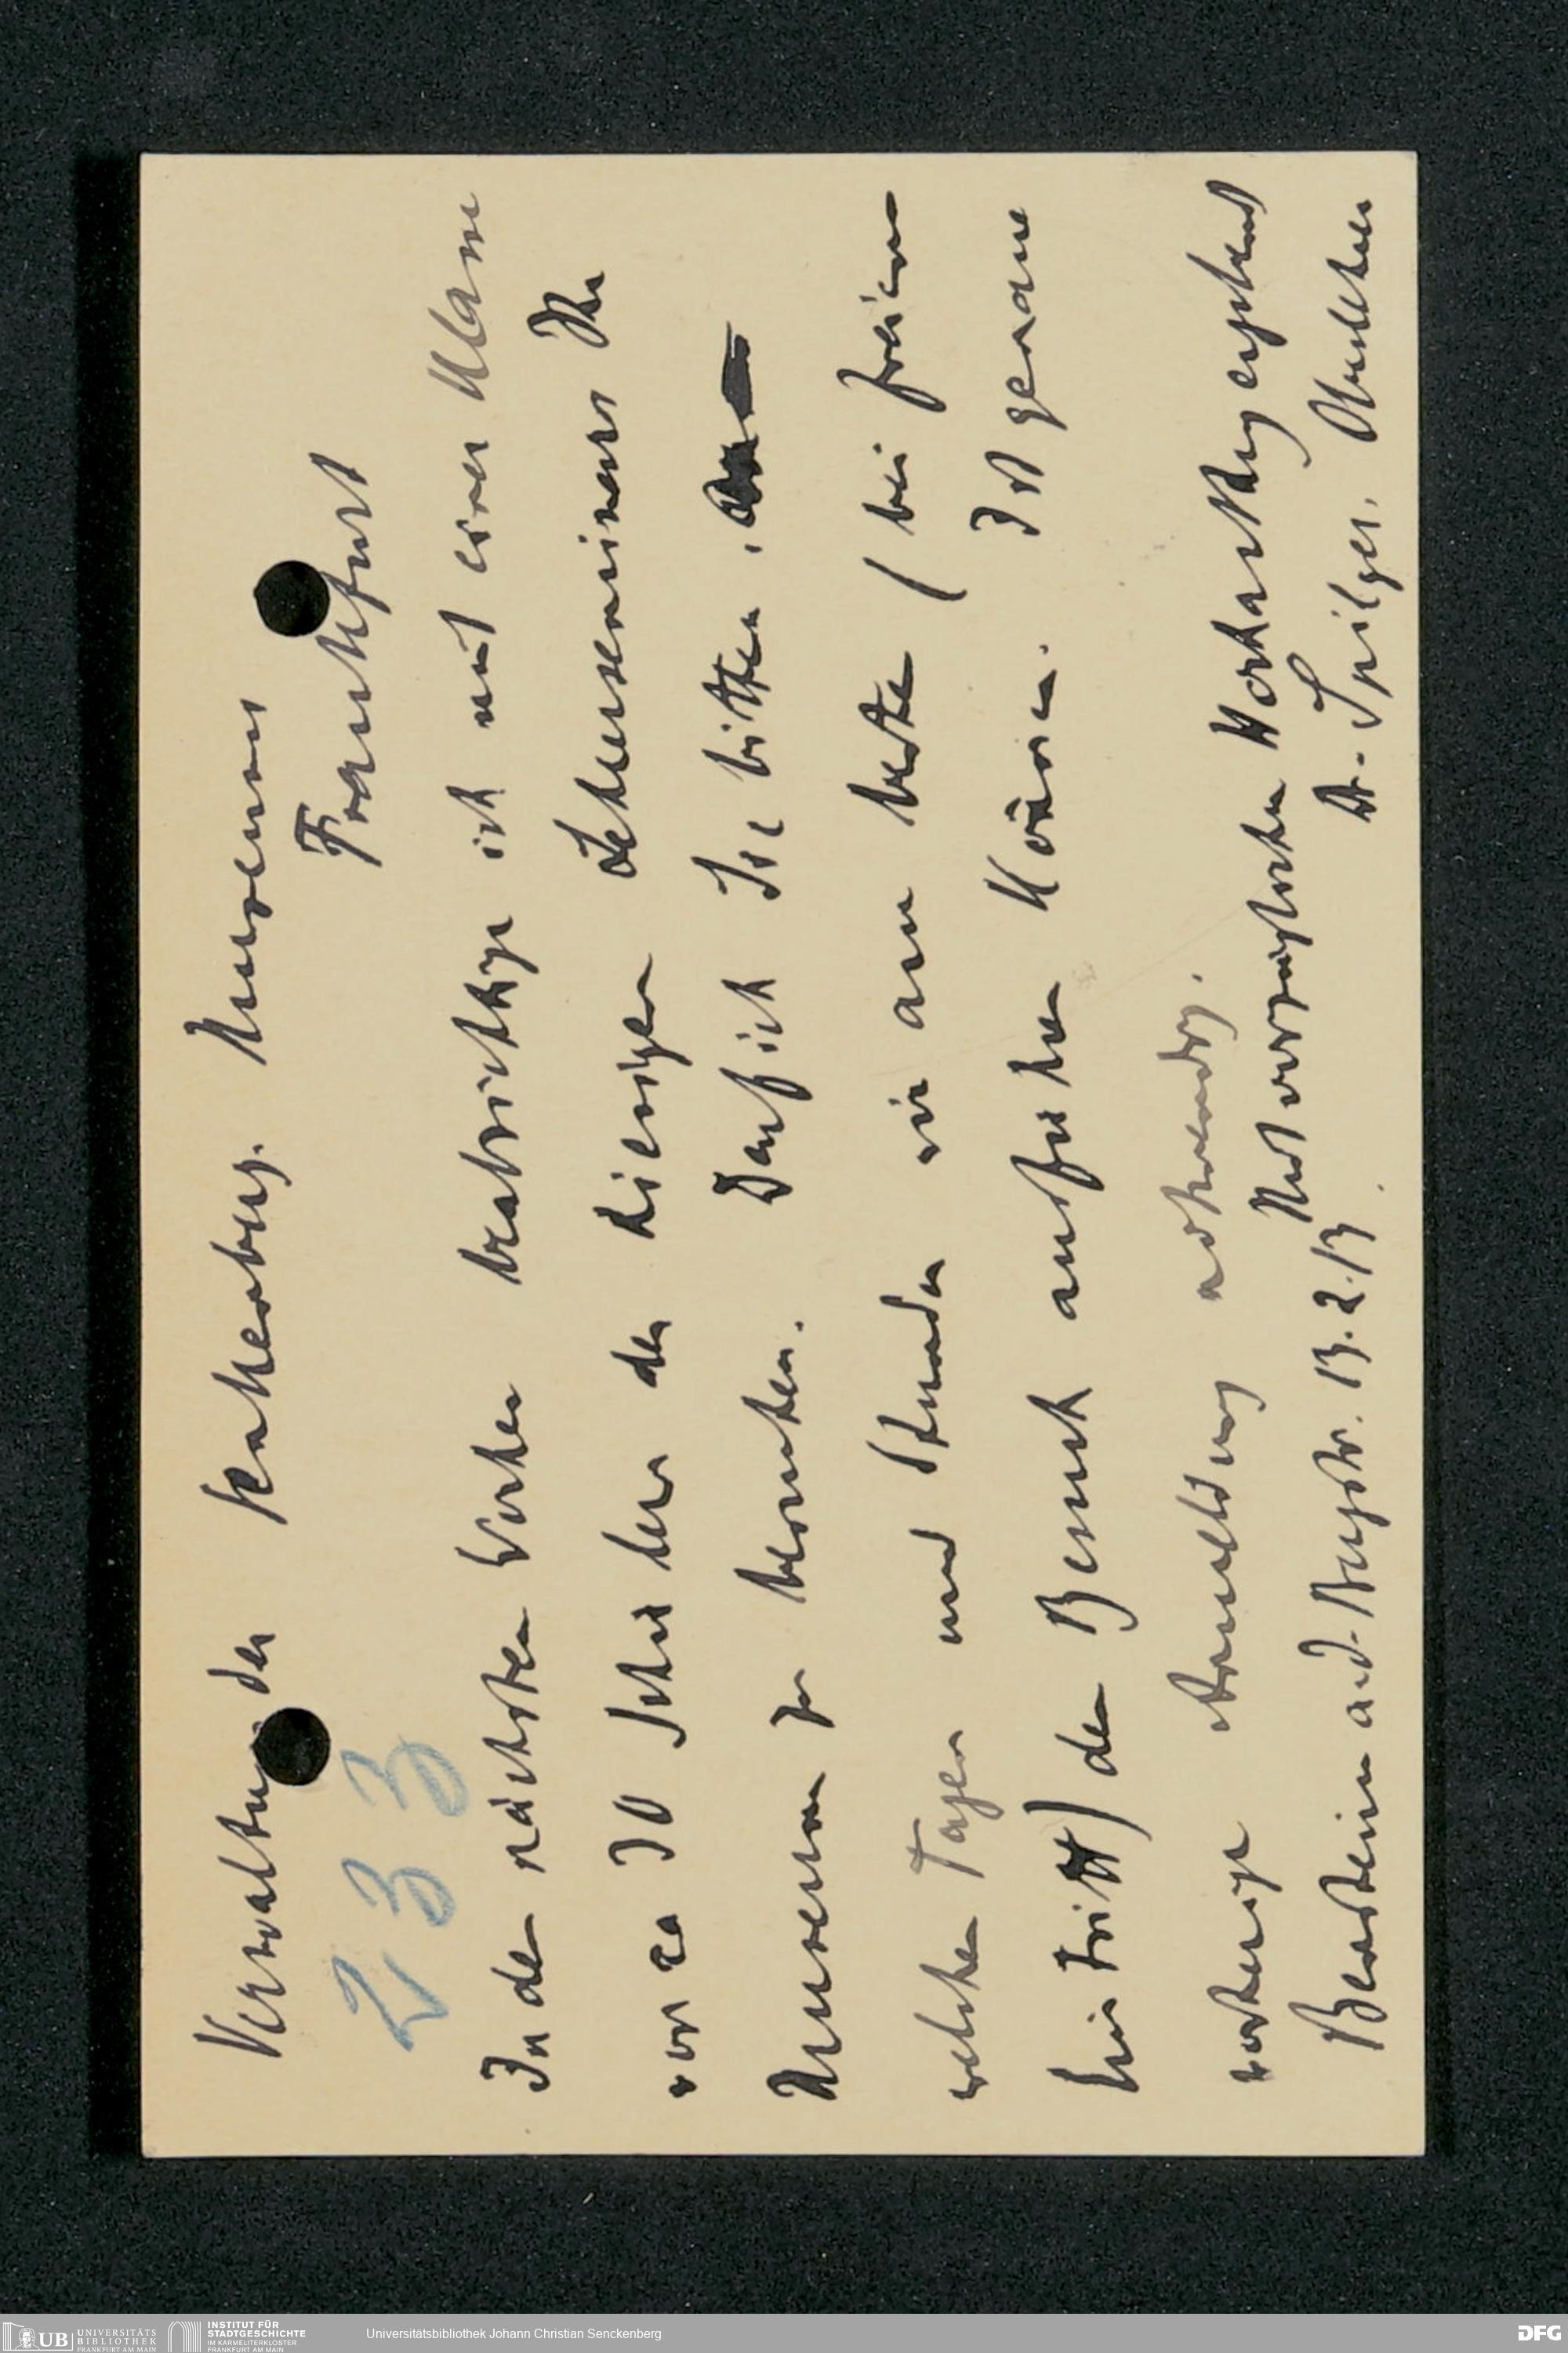 Verwaltung der Senckenberg. Museums
Frankfurt
233
In den nächsten Wochen beabsichtige ich mit einer Klasse
von ca 30 Schülern des hiesigen Lehrerseminars Ihr
Museum zu besuchen. Darf ich Sie bitten,
welchen Tagen und Stunden wir am besten (bei freiem
Eintritt) den Besuch ausführen können. Ist genaue
vorherige Anmeldung notwendig.
Mit vorzüglicher Hochachtung ergebenst
Bensheim a.d. Bergstr. 13.2.13. Dr. Spilger, Oberlehrer
UB UNIVERSITÄTS
BIBLIOTHEK
FRANKFURT AM MAIN
INSTITUT FÜR
STADTGESCHICHTE
IM KARMELITERKLOSTER
FRANKFURT AM MAIN
Universitätsbibliothek Johann Christian Senckenberg
DFG